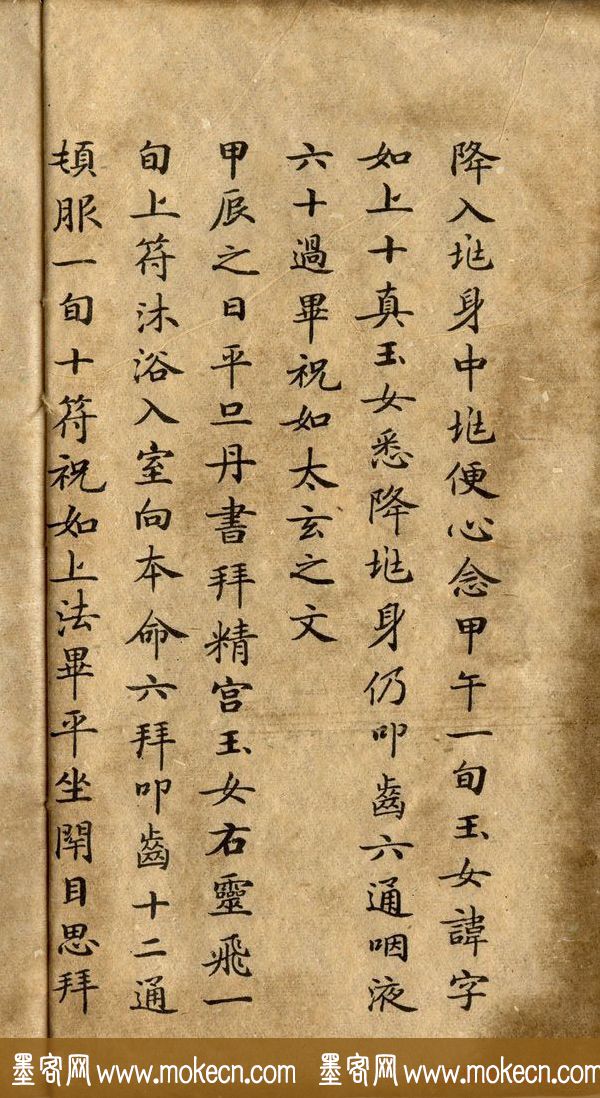 降入兆身中兆便心念甲午一旬玉女諱字
如上十真玉女悉降兆身仍叩齒六通咽液
六十過畢祝如太玄之文
甲辰之日平旦丹書拜精宮玉女右靈飛一
旬上符沐浴入室向本命六拜叩齒十二通
頓服一旬十符祝如上法畢平坐閇目思拜
墨客网 www.mokecn.com 墨客网 www.mokecn.com